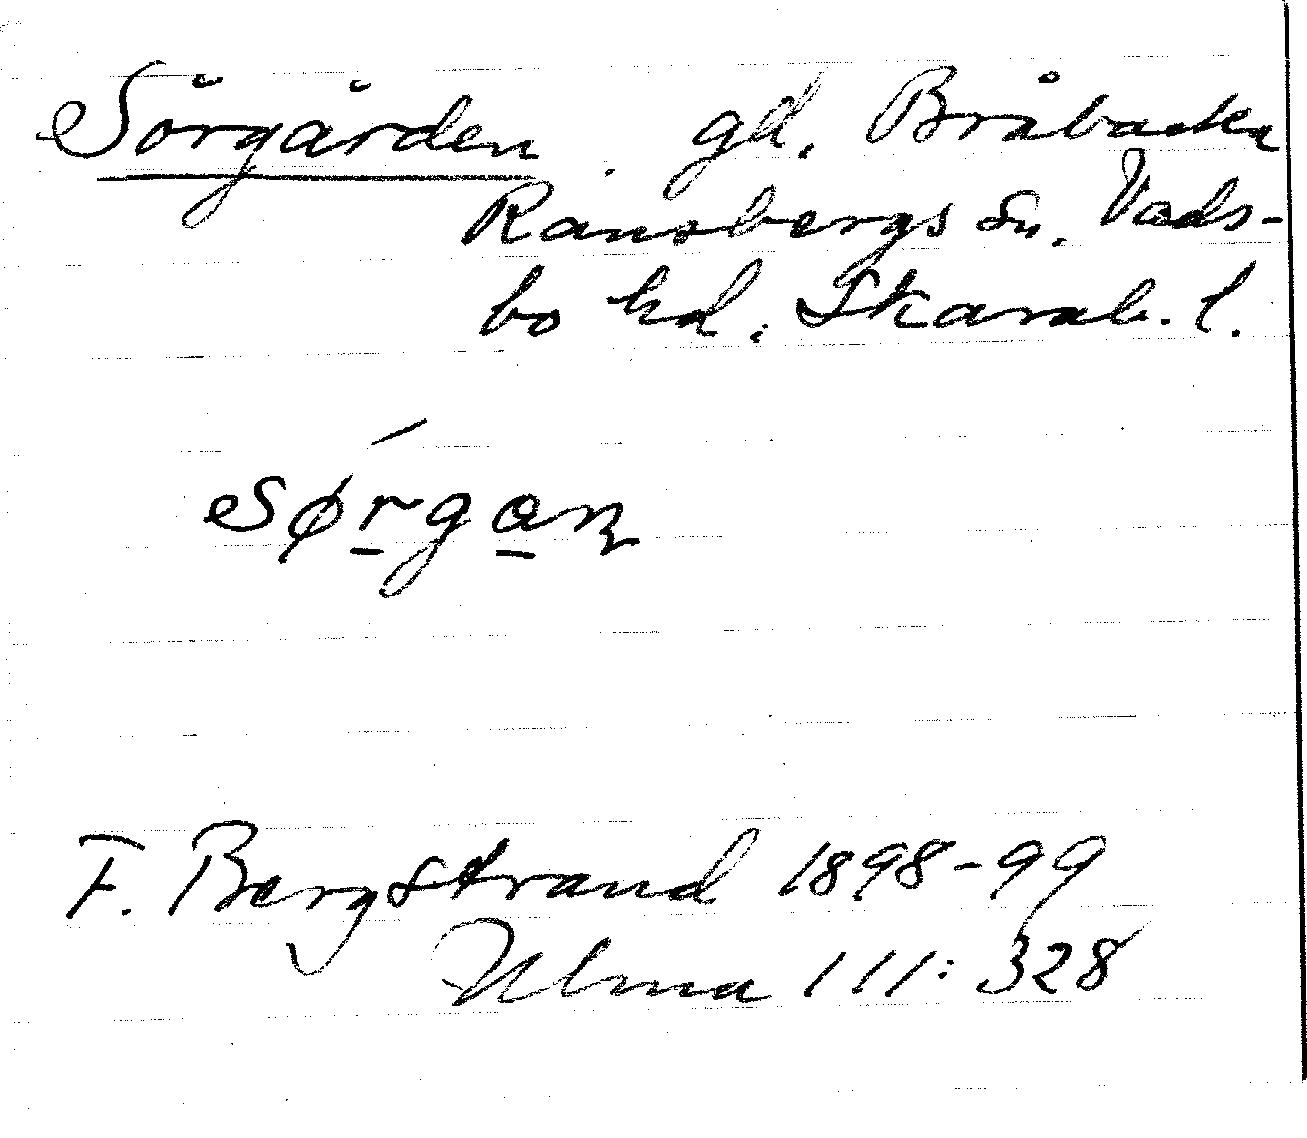 Sörgården gd. Bråbacka
Ransbergs sn. Vads-
bo hd. Skarab. l.
Sørgan
F. Bergstrand 1898-99
Ulma 111:328